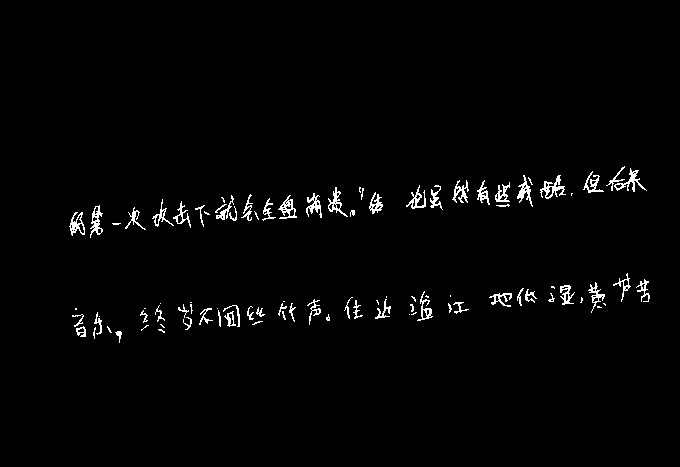 的第一次攻击下就会全盘崩溃。"结 也虽然有些残酷,但后果
音乐,终岁不闻丝竹声。住近湓江地低湿,黄芦苦